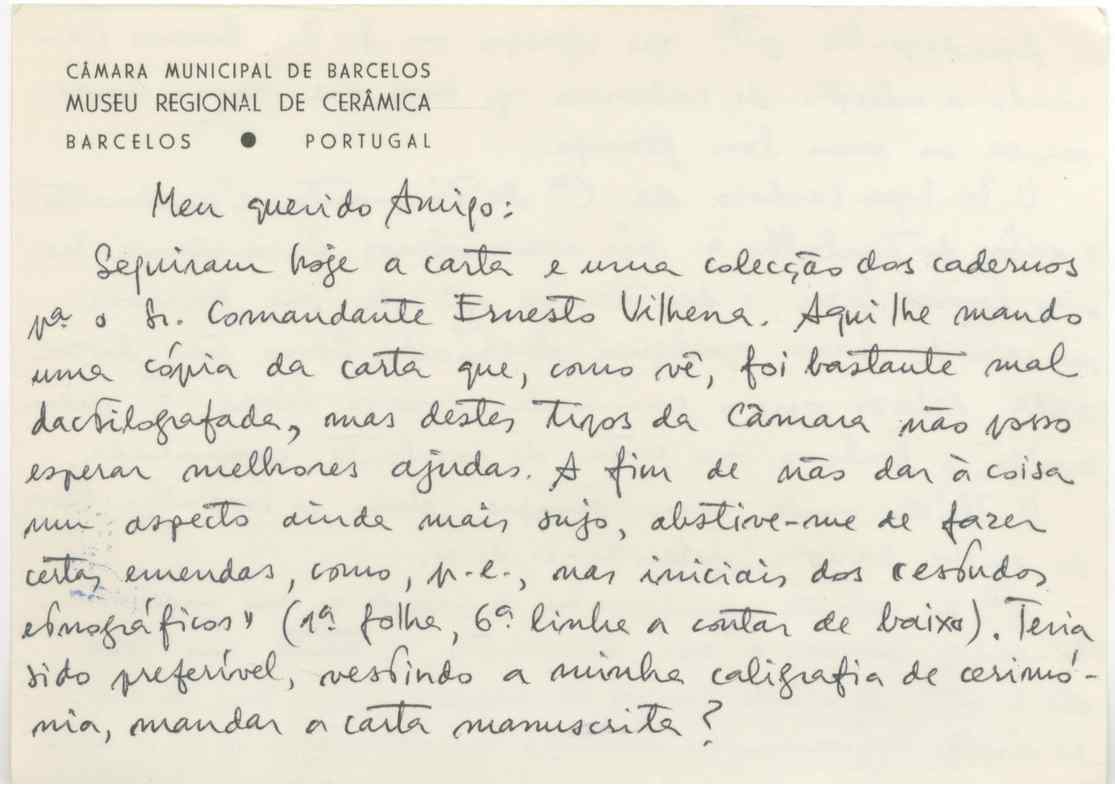 CÂMARA MUNICIPAL DE BARCELOS
MUSEU REGIONAL DE CERÂMICA
BARCELOS ● PORTUGAL
Meu querido Amigo:
Seguiram hoje a carta e uma colecção dos cadernos
pª o Sr. Comandante Ernesto Vilhena. Aqui lhe mando
uma cópia da carta que, como vê, foi bastante mal
dactilografada, mas destes tipos da Câmara não posso
esperar melhores ajudas. A fim de não dar à coisa
um aspecto ainda mais sujo, abstive-me de fazer
certas emendas, como, p.e., nas iniciais dos «estudos
etnográficos» (1ª folha, 6ª linha a contar de baixo). Teria
sido preferível, vestindo a minha caligrafia de cerimó-
nia, mandar a carta manuscrita?